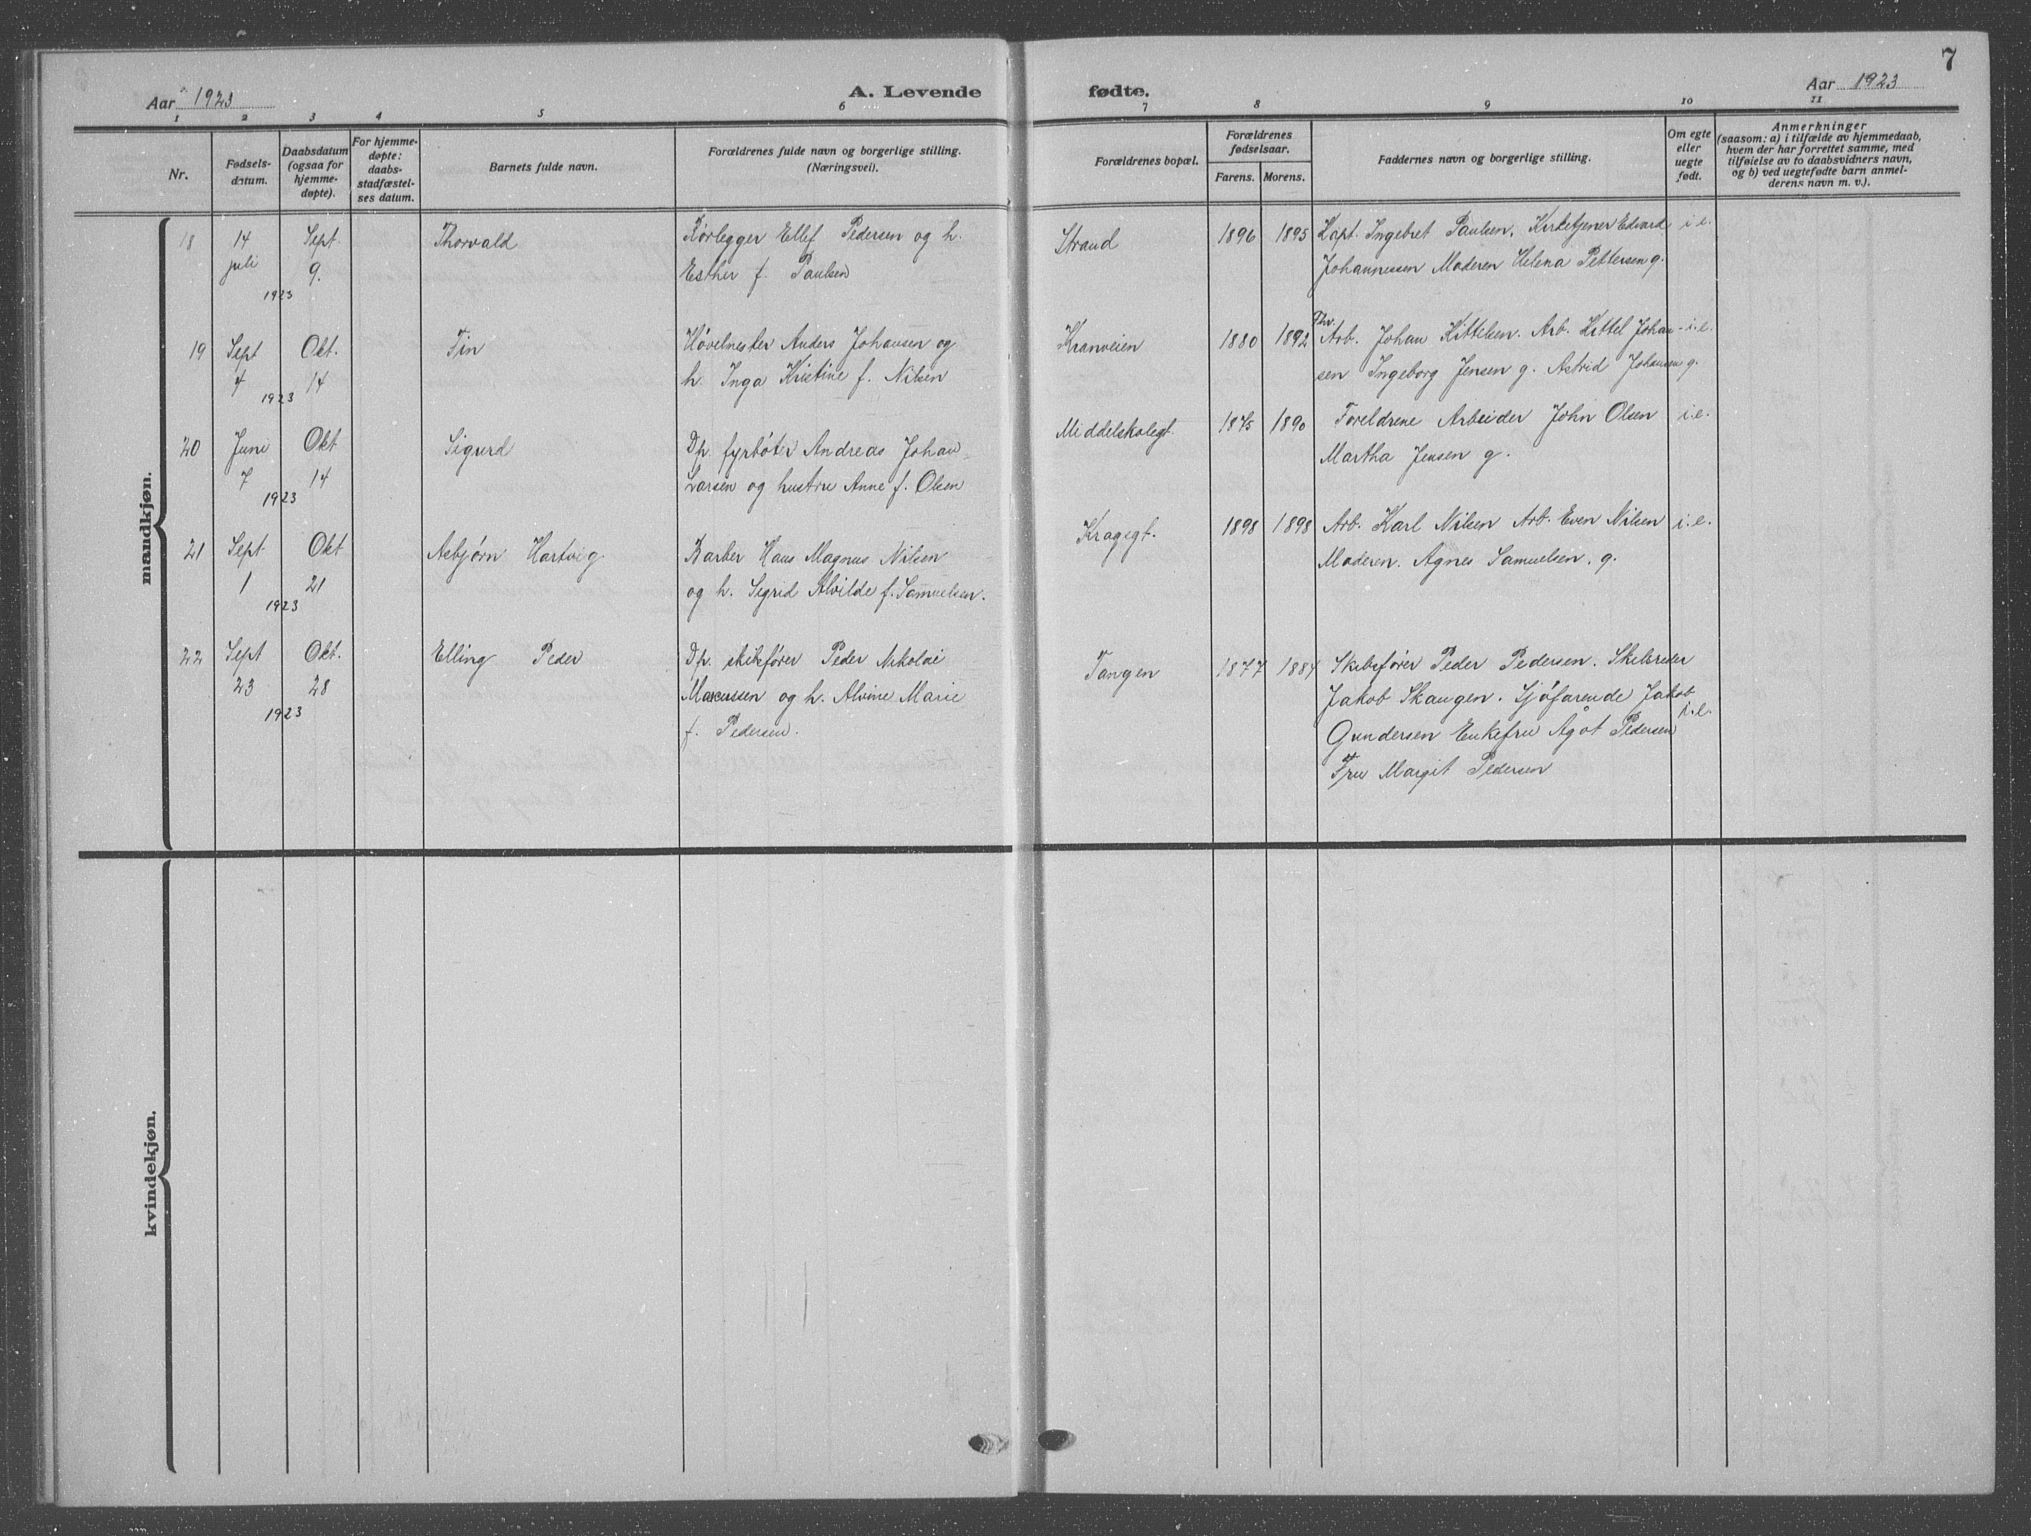 7
Aar 1923
A. Levende
fødte.
Aar 1923
1 2 3 4 5 6 7 8 9 10 11
Nr.
Fødsels-
datum.
Daabsdatum
(ogsaa for
hjemme-
døpte).
For hjemme-
døpte:
daabs-
stadfæstel-
ses datum.
Barnets fulde navn.
Forældrenes fulde navn og borgerlige stilling.
(Næringsvei).
Forældrenes bopæl.
Forældrenes
fødselsaar.
Farens. Morens.
Faddernes navn og borgerlige stilling.
Om egte
eller
uegte
født.
Anmerkninger
(saasom: a) i tilfælde av hjemmedaab,
hvem der har forrettet samme, med
tilføielse av to daabsvidners navn,
og b) ved uegtefødte barn anmel-
derens navn m. v.).
mandkjøn.
18
14
juli
Sept
9.
1923
Thorvald
Rørlegger Ellef Pedersen og h.
Esther f. Paulsen
Strand
1896
1895
Kapt. Ingebret Paulsen, Kirketjener Edvard
Johannessen Moderen Helena Pettersen g.
i.e.
19
Sept
4
Okt.
14
1923
Tin
Høvelmester Anders Johansen og
h. Inga Kristine f. Nilsen
Kranveien
1880
1892
Arb. Johan Kittelsen. Arb. Kittel Johan-
sen Ingeborg Jensen g. Astrid Johansen g.
i.e.
20
June
7
Okt
14
1923
Sigurd
Dp. fyrbøter Andreas Johan
Larsen og hustru Anne f. Olsen
Middelskolegt.
1875
1890
Foreldrene Arbeider John Olsen
Martha Jensen g.
i.e.
21
Sept
1
Okt
21
1923
Asbjørn Hartvig
Barber Hans Magnus Nilsen
og h. Sigrid Alvilde f. Samuelsen.
Kragegt.
1898
1898
Arb. Karl Nilsen Arb. Even Nilsen
Moderen. Agnes Samuelsen. g.
i.e.
22
Sept
23
Okt.
28
1923
Elling Peder
Dp. skibsfører Peder Nikolai
Marcussen og h. Alvine Marie
f. Pedersen.
Tangen
1877
1884
Skibsfører Peder Pedersen. Skibsreder
Jakob Skaugen. Sjöfarende Jakob
Gundersen Enkefru Agot Pedersen
Fru Margit Pedersen
i.e.
kvindekjøn.